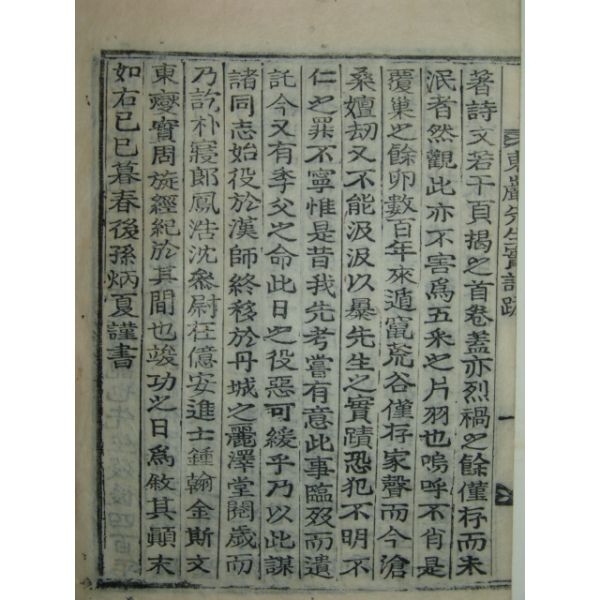 東巖先生實記跋
著詩文若干頁揭之首卷盖亦烈禍之餘僅存而未
泯者然觀此亦不害爲五采之片羽也嗚呼不肖是
覆巢之餘卵數百年來遁竄荒谷僅存家聲而今滄
桑嬗劫又不能汲汲以暴先生之實蹟恐犯不明不
仁之罪不寧惟是昔我先考嘗有意此事臨歿而遺
託今又有季父之命此日之役惡可緩乎乃以此謀
諸同志始役於漢師終移於丹城之麗澤堂閱歲而
乃訖朴寢郎鳳浩沈參尉在億安進士鍾翰金斯文
東燮實周旋經紀於其間也竣功之日爲敘其顚末
如右己巳暮春後孫炳夏謹書